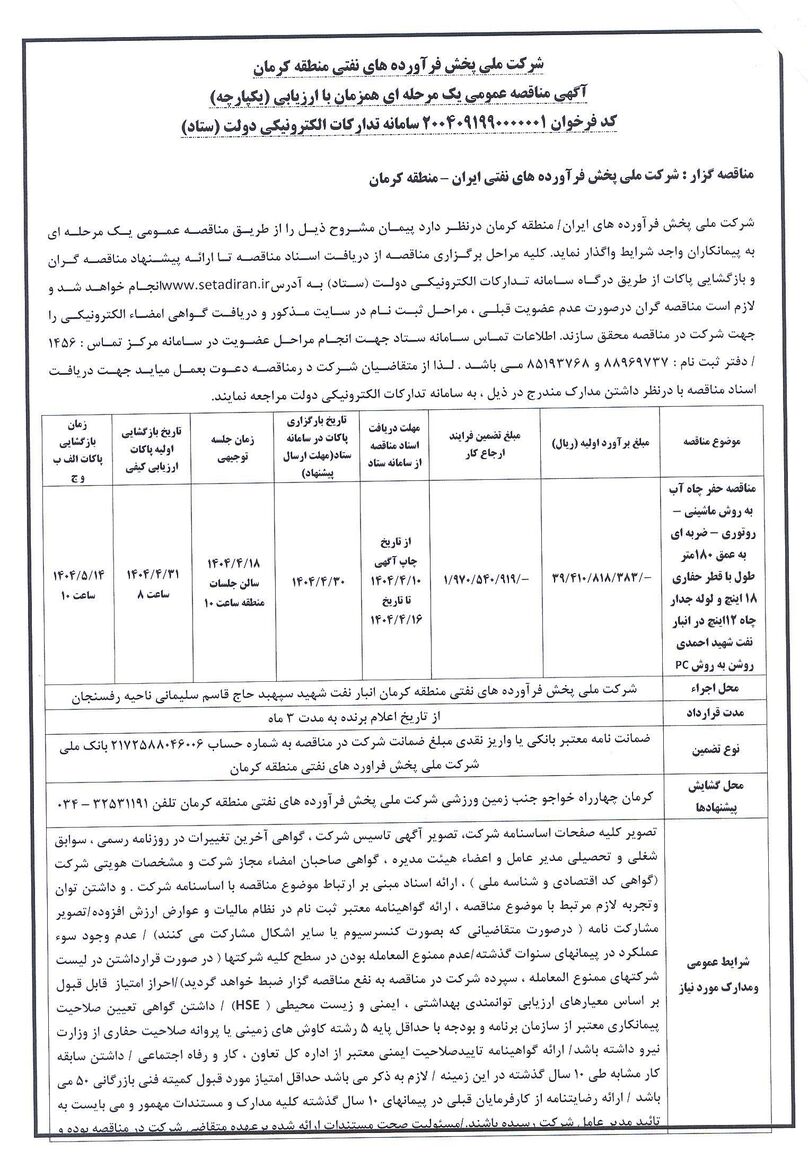 شرکت ملی پخش فرآورده های نفتی منطقه کرمان
آگهی مناقصه عمومی یک مرحله ای همزمان با ارزیابی (یکپارچه)
کد فرخوان ۲۰۰۴۰۹۱۹۹۰۰۰۰۰۰۱ سامانه تدارکات الکترونیکی دولت (ستاد)
مناقصه گزار : شرکت ملی پخش فرآورده های نفتی ایران – منطقه کرمان
شرکت ملی پخش فرآورده های ایران/ منطقه کرمان درنظر دارد پیمان مشروح ذیل را از طریق مناقصه عمومی یک مرحله ای
به پیمانکاران واجد شرایط واگذار نماید. کلیه مراحل برگزاری مناقصه از دریافت اسناد مناقصه تا ارائه پیشنهاد مناقصه گران
و بازگشایی پاکات از طریق درگاه سامانه تدارکات الکترونیکی دولت (ستاد) به آدرس www.setadiran.ir انجام خواهد شد و
لازم است مناقصه گران درصورت عدم عضویت قبلی ، مراحل ثبت نام در سایت مذکور و دریافت گواهی امضاء الکترونیکی را
جهت شرکت در مناقصه محقق سازند. اطلاعات تماس سامانه ستاد جهت انجام مراحل عضویت در سامانه مرکز تماس : ۱۴۵۶
/ دفتر ثبت نام : ۸۸۹۶۹۷۳۷ و ۸۵۱۹۳۷۶۸ می باشد . لذا از متقاضیان شرکت د رمناقصه دعوت بعمل میاید جهت دریافت
اسناد مناقصه با درنظر داشتن مدارک مندرج در ذیل ، به سامانه تدارکات الکترونیکی دولت مراجعه نمایند.
موضوع مناقصه
مبلغ برآورد اولیه (ریال)
مبلغ تضمین فرایند
ارجاع کار
مهلت دریافت
اسناد مناقصه
از سامانه ستاد
تاریخ بارگزاری
پاکات در سامانه
ستاد(مهلت ارسال
پیشنهاد)
زمان جلسه
توجیهی
تاریخ بازگشایی
اولیه پاکات
ارزیابی کیفی
زمان
بازگشایی
پاکات الف ب
و ج
مناقصه حفر چاه آب
به روش ماشینی –
روتوری – ضربه ای
به عمق ۱۸۰متر
طول با قطر حفاری
۱۸ اینچ و لوله جدار
چاه ۱۲اینچ در انبار
نفت شهید احمدی
روشن به روش PC
۳۹/۴۱۰/۸۱۸/۳۸۳/-
۱/۹۷۰/۵۴۰/۹۱۹/-
از تاریخ
چاپ آگهی
۱۴۰۴/۴/۱۰
تا تاریخ
۱۴۰۴/۴/۱۶
۱۴۰۴/۴/۳۰
۱۴۰۴/۴/۱۸
سالن جلسات
منطقه ساعت ۱۰
۱۴۰۴/۴/۳۱
ساعت ۸
۱۴۰۴/۵/۱۴
ساعت ۱۰
محل اجراء
شرکت ملی پخش فرآورده های نفتی منطقه کرمان انبار نفت شهید سپهبد حاج قاسم سلیمانی ناحیه رفسنجان
مدت قرارداد
از تاریخ اعلام برنده به مدت ۳ ماه
نوع تضمین
ضمانت نامه معتبر بانکی یا واریز نقدی مبلغ ضمانت شرکت در مناقصه به شماره حساب ۲۱۷۲۵۸۸۰۴۶۰۰۶ بانک ملی
شرکت ملی پخش فراورد های نفتی منطقه کرمان
محل گشایش
پیشنهادها
کرمان چهارراه خواجو جنب زمین ورزشی شرکت ملی پخش فرآورده های نفتی منطقه کرمان تلفن ۳۲۵۳۱۱۹۱ – ۰۳۴
شرایط عمومی
ومدارک مورد نیاز
تصویر کلیه صفحات اساسنامه شرکت، تصویر آگهی تاسیس شرکت ، گواهی آخرین تغییرات در روزنامه رسمی ، سوابق
شغلی و تحصیلی مدیر عامل و اعضاء هیئت مدیره ، گواهی صاحبان امضاء مجاز شرکت و مشخصات هویتی شرکت
(گواهی کد اقتصادی و شناسه ملی ) ، ارائه اسناد مبنی بر ارتباط موضوع مناقصه با اساسنامه شرکت . و داشتن توان
وتجربه لازم مرتبط با موضوع مناقصه ، ارائه گواهینامه معتبر ثبت نام در نظام مالیات و عوارض ارزش افزوده/تصویر
مشارکت نامه ( درصورت متقاضیانی که بصورت کنسرسیوم یا سایر اشکال مشارکت می کنند) / عدم وجود سوء
عملکرد در پیمانهای سنوات گذشته/عدم ممنوع المعامله بودن در سطح کلیه شرکتها ( در صورت قرارداشتن در لیست
شرکتهای ممنوع المعامله ، سپرده شرکت در مناقصه به نفع مناقصه گزار ضبط خواهد گردید)/احراز امتیاز قابل قبول
بر اساس معیارهای ارزیابی توانمندی بهداشتی ، ایمنی و زیست محیطی ( HSE) / داشتن گواهی تعیین صلاحیت
پیمانکاری معتبر از سازمان برنامه و بودجه با حداقل پایه ۵ رشته کاوش های زمینی یا پروانه صلاحیت حفاری از وزارت
نیرو داشته باشد/ ارائه گواهینامه تاییدصلاحیت ایمنی معتبر از اداره کل تعاون ، کار و رفاه اجتماعی / داشتن سابقه
کار مشابه طی ۱۰ سال گذشته در این زمینه / لازم به ذکر می باشد حداقل امتیاز مورد قبول کمیته فنی بازرگانی ۵۰ می
باشد / ارائه رضایتنامه از کارفرمایان قبلی در پیمانهای ۱۰ سال گذشته کلیه مدارک و مستندات مهمور و می بایست به
تائید مدیر عامل شرکت رسیده باشند./مسئولیت صحت مستندات ارائه شده برعهده متقاضی شرکت در مناقصه بوده و